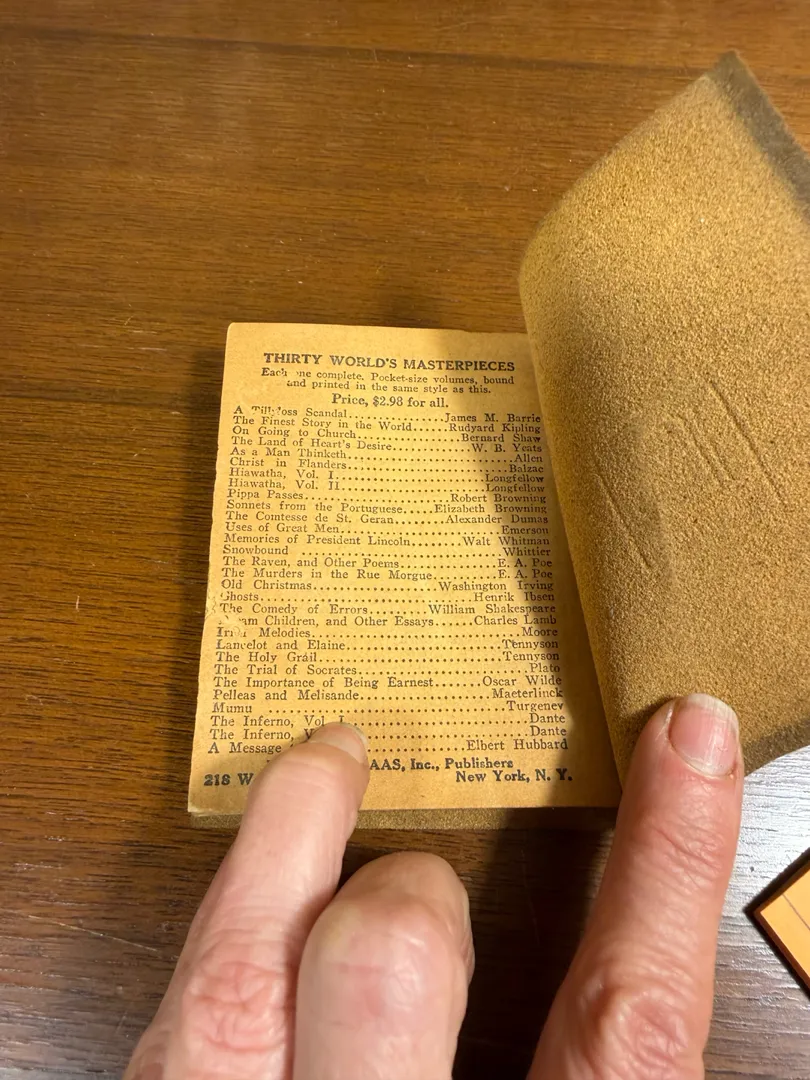 THIRTY WORLD'S MASTERPIECES
Each one complete. Pocket-size volumes, bound
and printed in the same style as this.
Price, $2.98 for all.
A Tillyloss Scandal....................James M. Barrie
The Finest Story in the World......Rudyard Kipling
On Going to Church....................Bernard Shaw
The Land of Heart's Desire..............W. B. Yeats
As a Man Thinketh..............................Allen
Christ in Flanders............................Balzac
Hiawatha, Vol. I..........................Longfellow
Hiawatha, Vol. II.........................Longfellow
Pippa Passes........................Robert Browning
Sonnets from the Portuguese.....Elizabeth Browning
The Comtesse de St. Geran.......Alexander Dumas
Uses of Great Men............................Emerson
Memories of President Lincoln........Walt Whitman
Snowbound ...................................Whittier
The Raven, and Other Poems...............E. A. Poe
The Murders in the Rue Morgue...........E. A. Poe
Old Christmas.....................Washington Irving
Ghosts..................................Henrik Ibsen
The Comedy of Errors..........William Shakespeare
Children, and Other Essays......Charles Lamb
Melodies................................Moore
Lancelot and Elaine.........................Tennyson
The Holy Grail...............................Tennyson
The Trial of Socrates............................Plato
The Importance of Being Earnest.......Oscar Wilde
Pelleas and Melisande.....................Maeterlinck
Mumu ......................................Turgenev
The Inferno, Vol. I.............................Dante
The Inferno, ..............................Dante
A Message ......................Elbert Hubbard
Inc., Publishers
New York, N. Y.